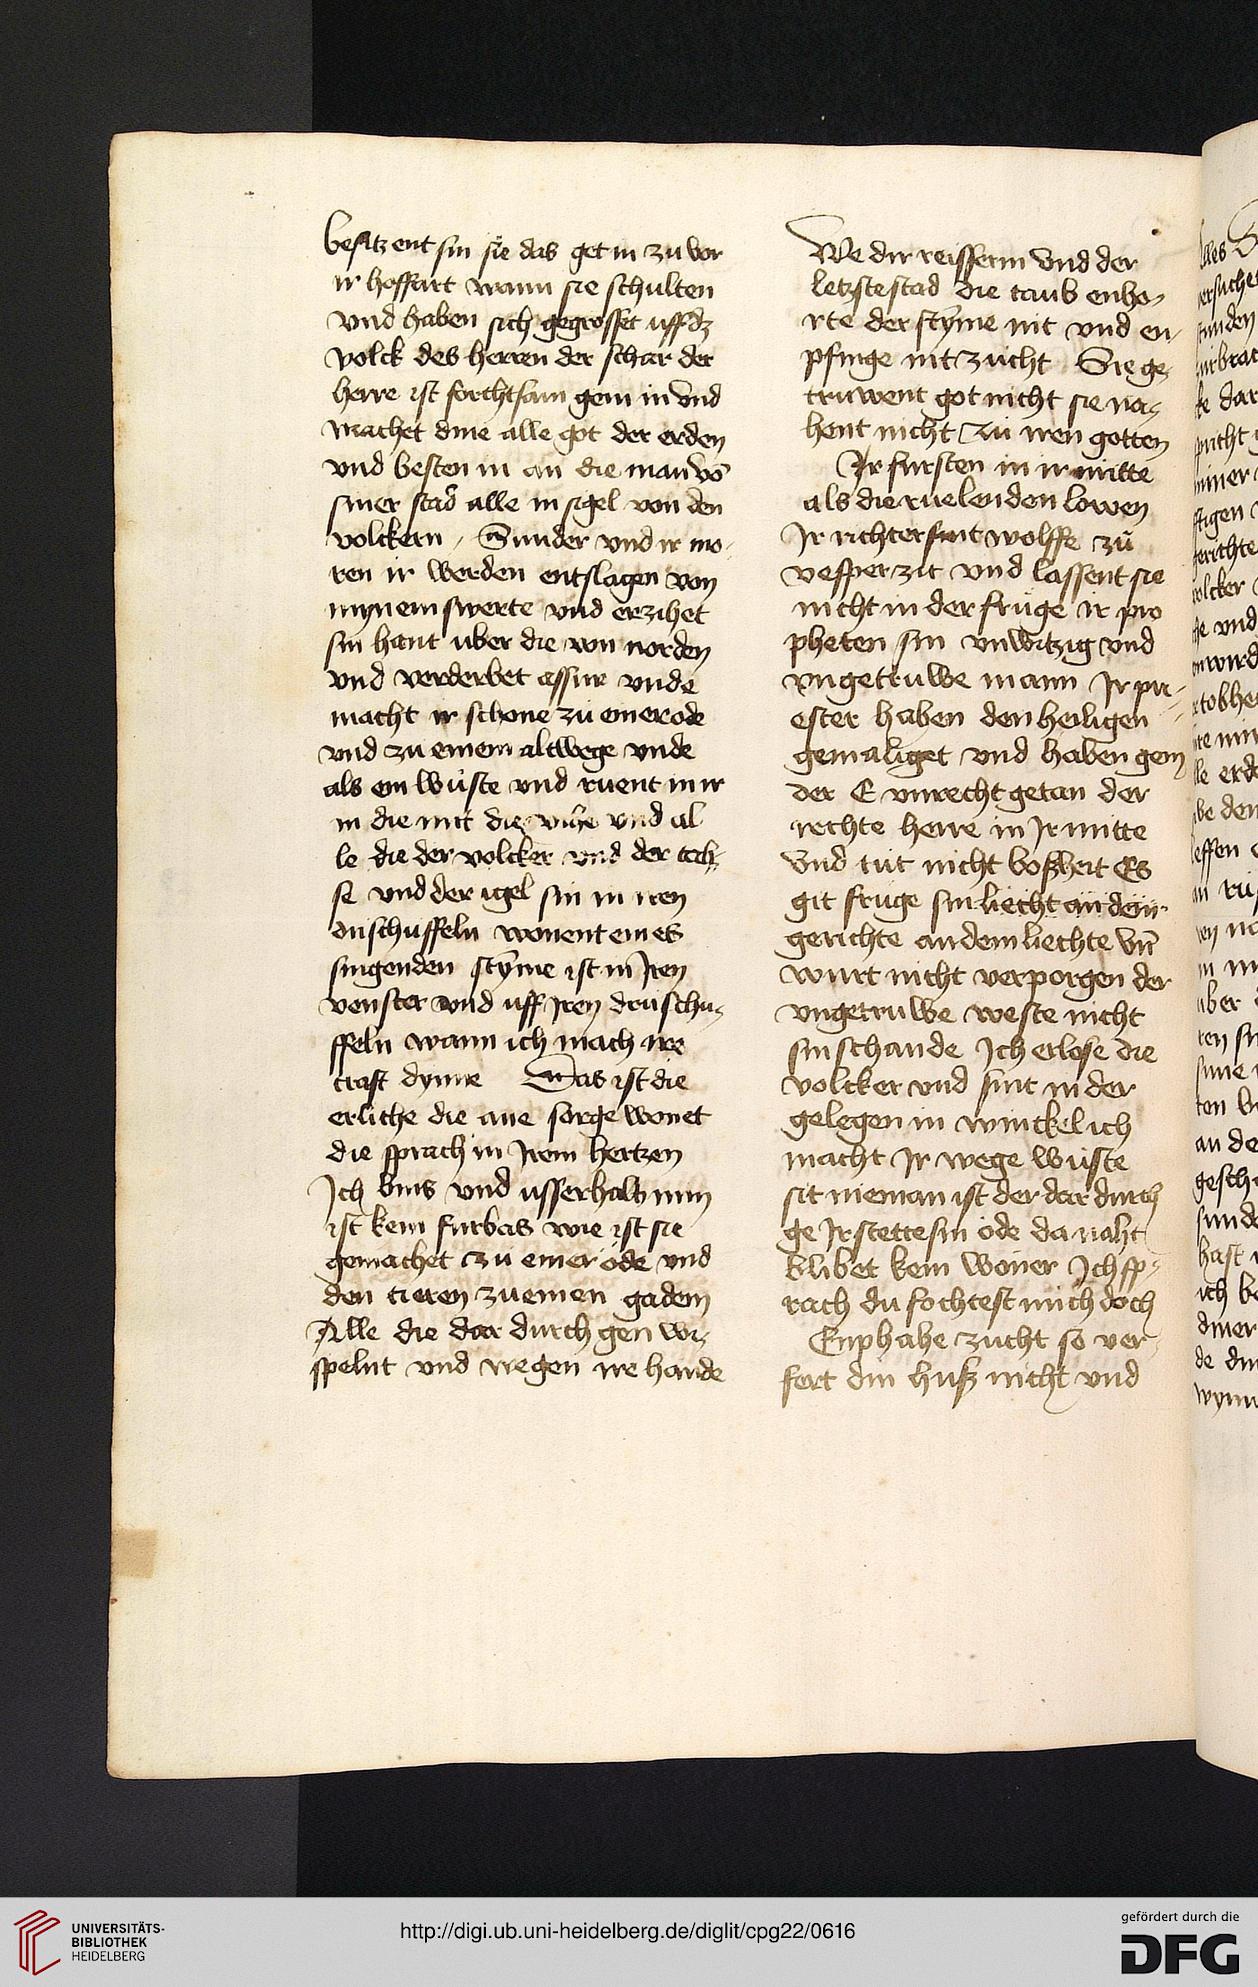 besitzent sin sie das get in zu vor
ir hoffart wann sie schulten
vnd haben sich gegrosset uff dz
volck des herren der schar der
herre ist forchtsam gem in vnd
machet dine alle got der erden
vnd besten in an die man vō
siner stad alle in sigel von den
volckern / Sunder vnd ir mo-
ren ir werden entslagen von
mynem swerte vnd erzihet
sin hant uber die von norden
vnd verderbet assur vnde
macht ir schone zu einer ode
vnd zu einem altwege vnde
als ein wuste vnd ruent in ir
in die mit die vihe vnd al
le die der volcker vnd der tech-
se vnd der igel sin in iren
duschuffeln wonent eines
singenden styme ist in Iren
venster vnd uff Iren druschu-
ffeln wann ich mach ire
craft dynne Das ist die
erliche die ane sorge wonet
die sprach in Irem hertzen
Ich bins vnd usserhalb min
ist kein furbas wie ist sie
gemachet zu einer ode vnd
den tieren zu einen gadem
Alle die dar durch gen wi-
spelnt vnd wegen ire hande
We dir reisserin vnd der
letzste stad die taub enho-
rte der styme nit vnd en-
pfinge nit zucht Sie ge-
truwent got nicht sie na-
hent nicht zu iren gotten
Ir fursten in ir mitte
als die ruelenden lowen
Ir richter sint wolffe zu
vesper zit vnd lassent sie
nicht in der fruge ir pro
pheten sin vnwitzig vnd
vngetruwe mann Ir pri-
ester haben den heiligen
gemaliget vnd haben gem
der E vnrecht getan der
rechte herre in Ir mitte
vnd tut nicht boßheit Es
git fruge sin liecht an dem
gerichte an dem liechte vn̄
wurt nicht verporgen der
vngetruwe weste nicht
sin schande Ich erlose die
volcker vnd sint in der
gelegen in winckel ich
macht Ir wege wuste
sit nieman ist der dar durch
ge Ir stette sin ode da naht
blibet kein woner Ich sp-
rach du fochtest mich doch
Enphahe zucht so ver-
fert din huß nicht vnd
UNIVERSITÄTS-
BIBLIOTHEK
HEIDELBERG
http://digi.ub.uni-heidelberg.de/diglit/cpg22/0616
gefördert durch die
DFG